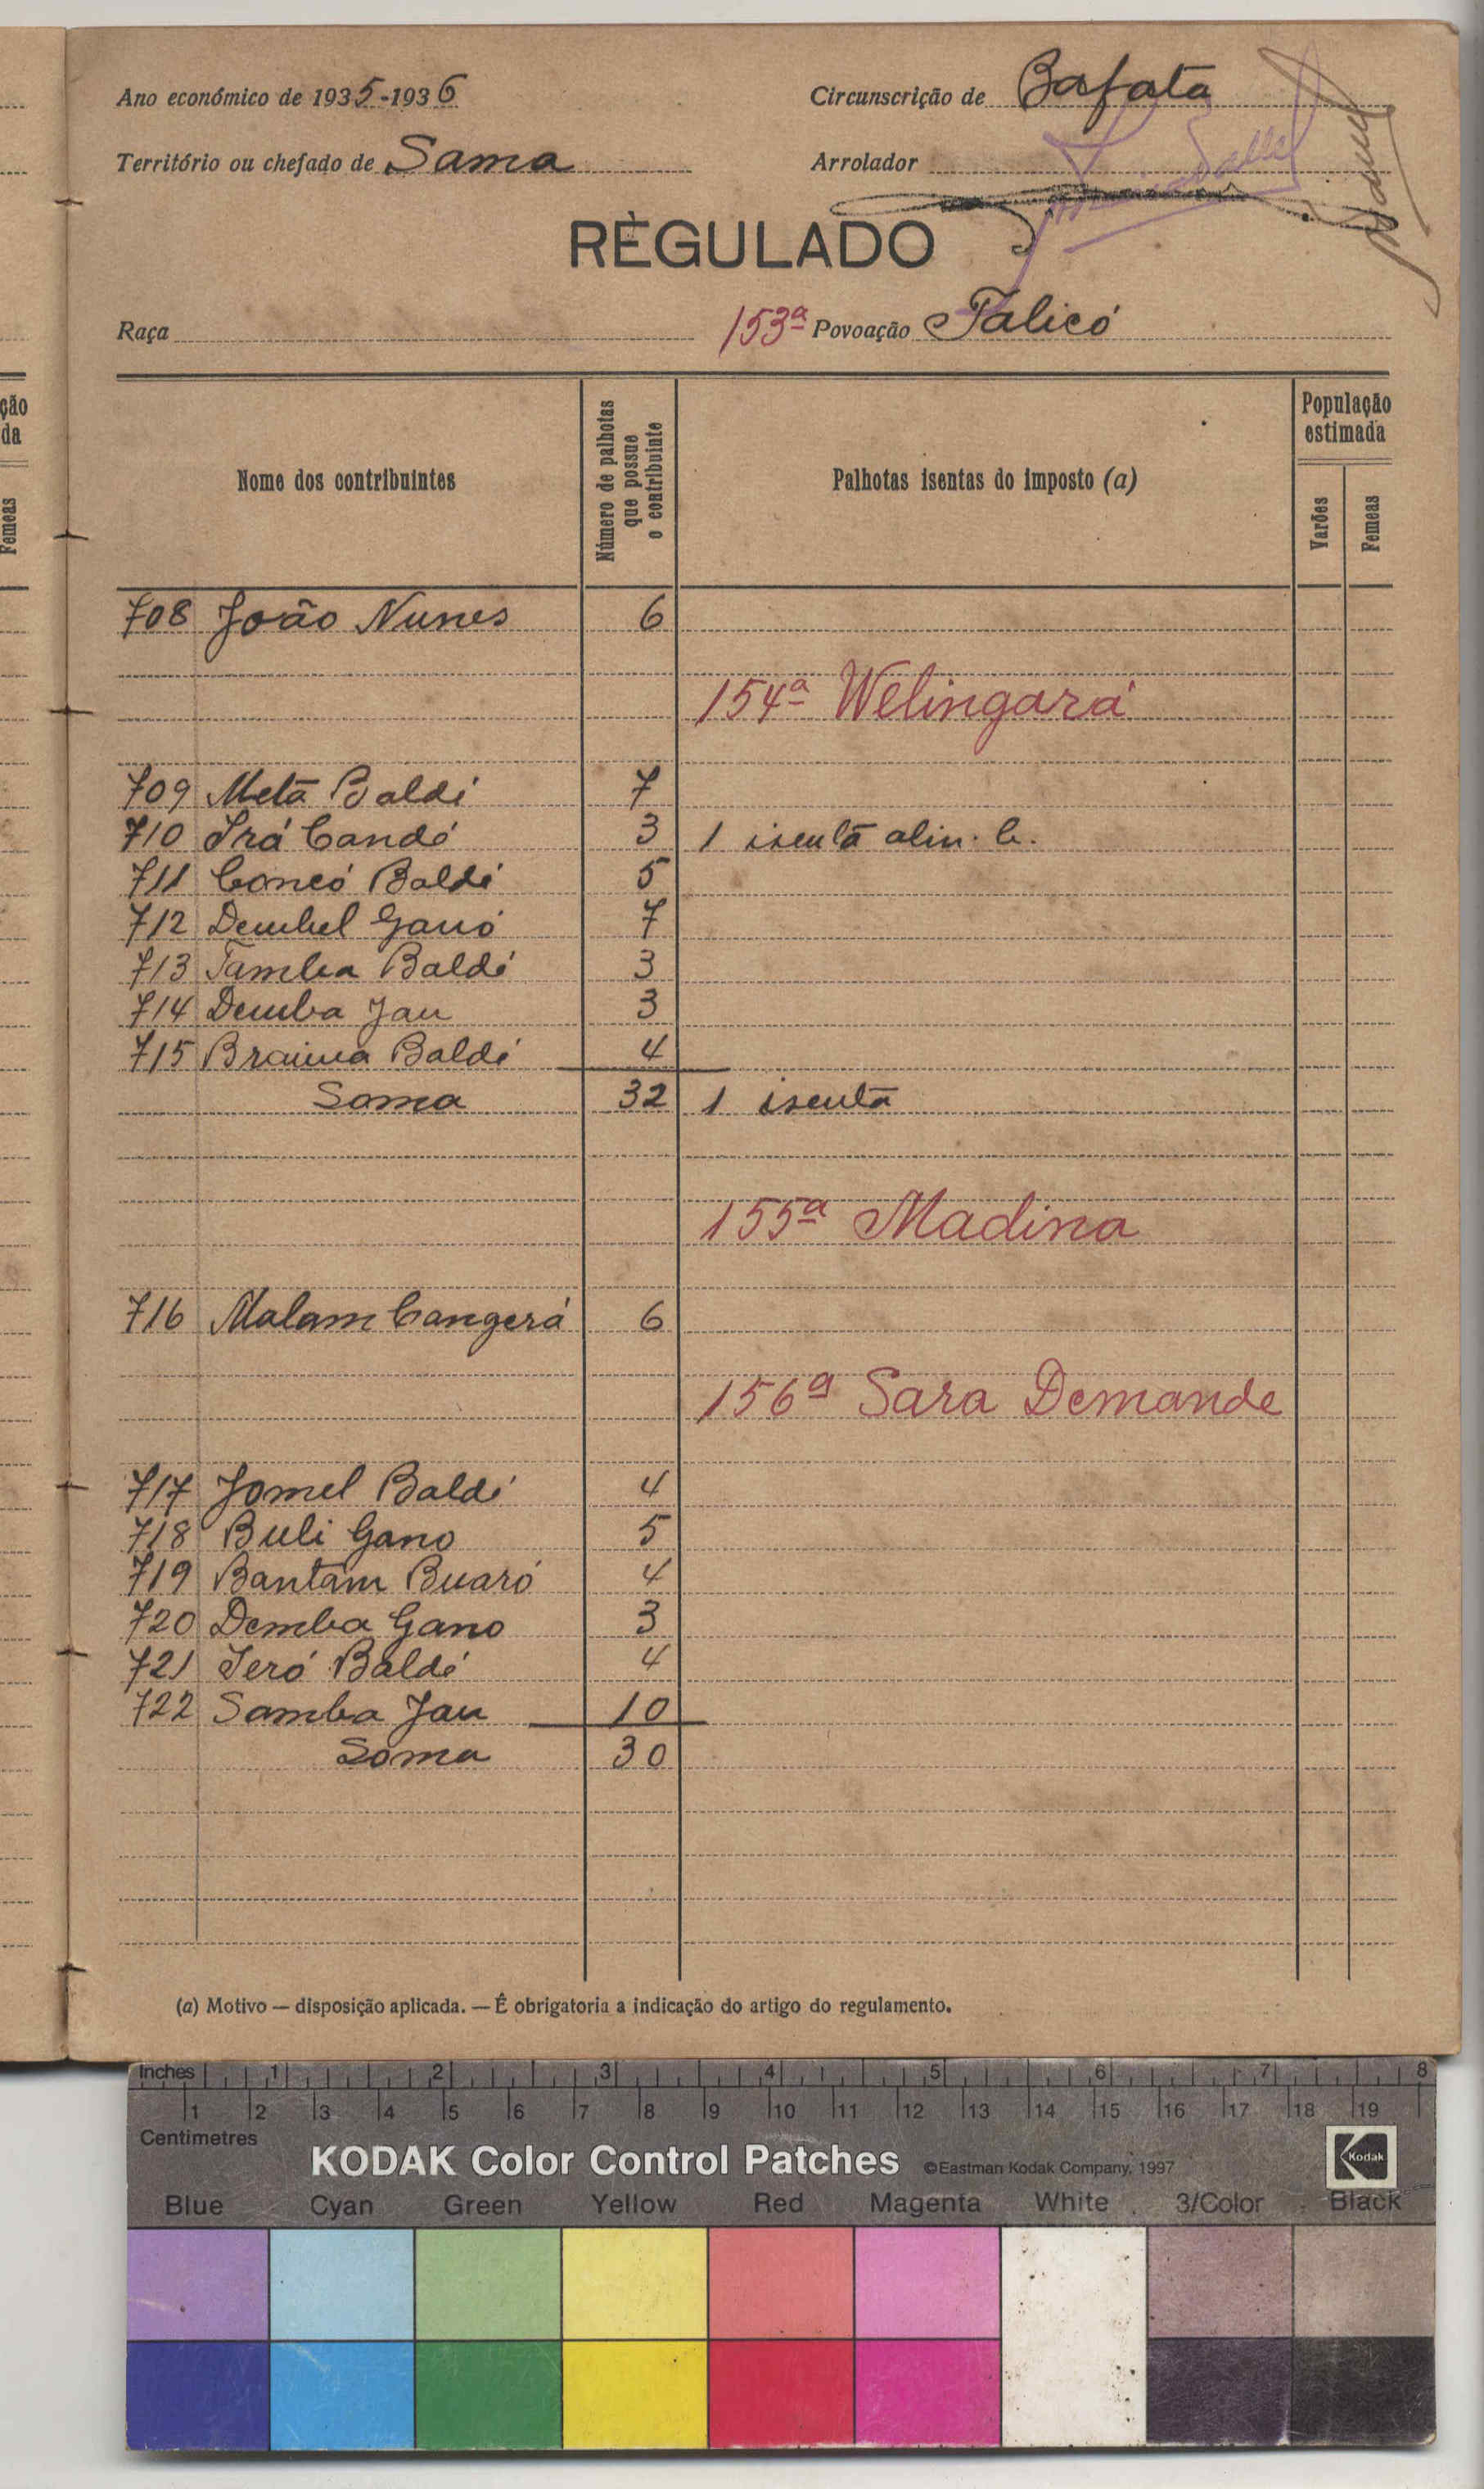 Ano económico de 1935-1936
Circunscrição de Bafata
Território ou chefado de Sama
Arrolador
RÈGULADO
Raça
153ª Povoação Talicó
Nome dos contribuintes
Número de palhotas que possue o contribuinte
Palhotas isentas do imposto (a)
População estimada
Varões
Femeas
ção
da
Femeas
708 João Nunes 6
154ª Welingará
709 Metā Baldé 7
710 Irá Candé 3 1 isentā alin. b.
711 Concó Baldé 5
712 Dembel Ganó 7
713 Tamba Baldé 3
714 Demba Jau 3
715 Braima Baldé 4
Soma 32 1 isentā
155ª Madina
716 Malam Cangerá 6
156ª Sara Demande
717 Jomel Baldé 4
718 Buli Gano 5
719 Bantam Buaró 4
720 Demba Gano 3
721 Jeró Baldé 4
722 Samba Jau 10
Soma 30
(a) Motivo — disposição aplicada. — É obrigatoria a indicação do artigo do regulamento.
Inches 1 2 3 4 5 6 7 8
1 2 3 4 5 6 7 8 9 10 11 12 13 14 15 16 17 18 19
Centimetres
KODAK Color Control Patches ©Eastman Kodak Company, 1997 Kodak
Blue Cyan Green Yellow Red Magenta White 3/Color Black